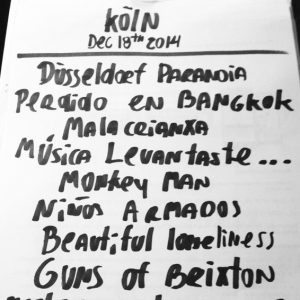 KÖLN
DEC 18th 2014
DÜSSELDORF PARANOIA
PERDIDO EN BANGKOK
MALACRIANXA
MÚSICA LEVANTASTE...
MONKEY MAN
NIÑOS ARMADOS
Beautiful loneliness
GUNS OF BRIXTON